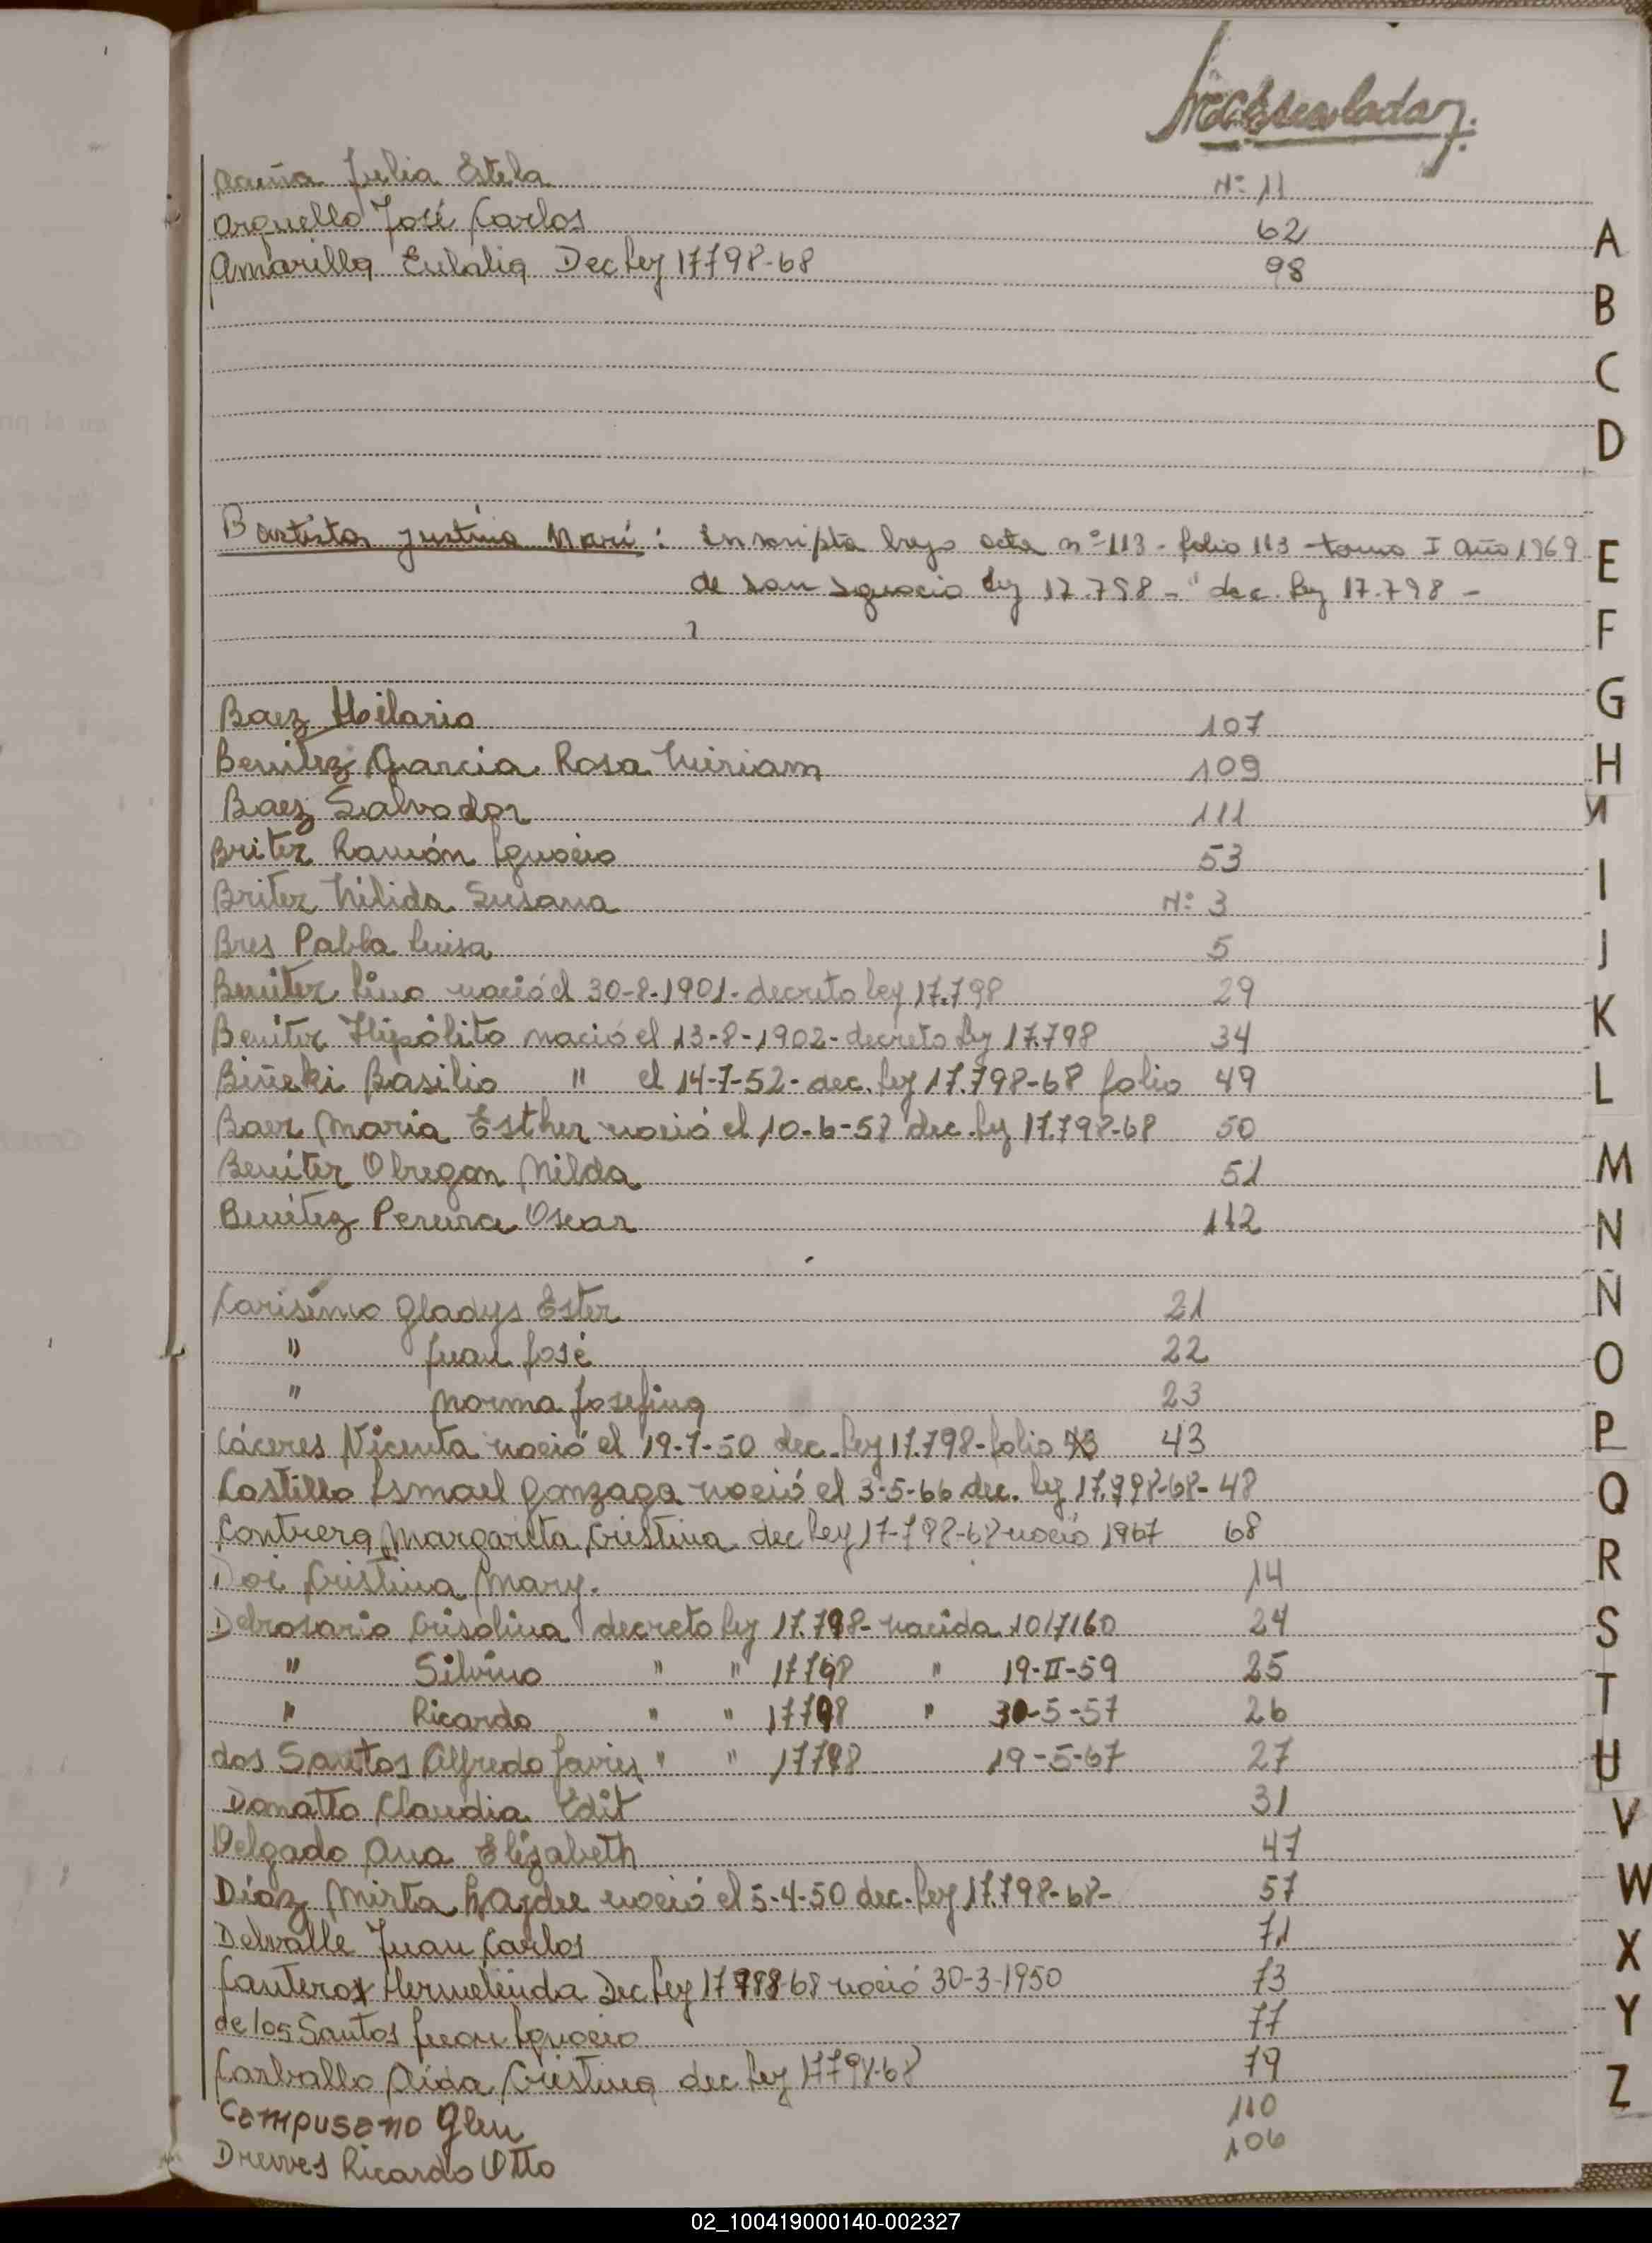 Acuña Julia Estela Nº 11
Arguello José Carlos 62
Amarilla Eulalia Dec Ley 17798-68 98
Bautista Justina Mari: Inscripta bajo acta nº 113 - folio 113 - tomo I año 1969
de San Ignacio ley 17.798 - " dec. ley 17.798 -
Baez Hilario 107
Benitez Garcia Rosa Miriam 109
Baez Salvador 111
Britez Ramón Ignacio 53
Britez Nélida Susana Nº 3
Bres Pabla Luisa 5
Benitez Lino nació el 30-8-1901- decreto ley 17.798 29
Benitez Hipólito nació el 13-8-1902- decreto ley 17.798 34
Biñeki Basilio " el 14-7-52- dec. ley 17.798-68 folio 49
Baez Maria Esther nació el 10-6-58 dec. ley 17.798-68 50
Benitez Obregon Nilda 51
Benitez Pereira Oscar 112
Carísimo Gladys Ester 21
" Juan José 22
" Norma Josefina 23
Cáceres Vicenta nació el 19-7-50 dec. ley 17.798- folio 43
Castillo Ismael Gonzaga nació el 3-5-66 dec. ley 17.798-68- 48
Contrera Margarita Cristina dec ley 17-798-68 nació 1967 68
Doi Cristina Mary. 14
Debrosario Crisolina decreto ley 17.798- nacida 10/7/60 24
" Silvino " " 17798 " 19-II-59 25
" Ricardo " " 17798 " 30-5-57 26
dos Santos Alfredo Javier " " 17798 19-5-67 27
Donatto Claudia Edit 31
Delgado Ana Elizabeth 47
Díaz Mirta Haydee nació el 5-4-50 dec. ley 17.798-68- 57
Delvalle Juan Carlos 71
Canteros Hermelinda Dec ley 17798-68 nació 30-3-1950 73
de los Santos Juan Ignacio 77
Carballo Aída Cristina dec ley 17798-68 79
Campusano Glen 110
Drewes Ricardo Otto 106
A
B
C
D
E
F
G
H
I
J
K
L
M
N
Ñ
O
P
Q
R
S
T
U
V
W
X
Y
Z
02_100419000140-002327